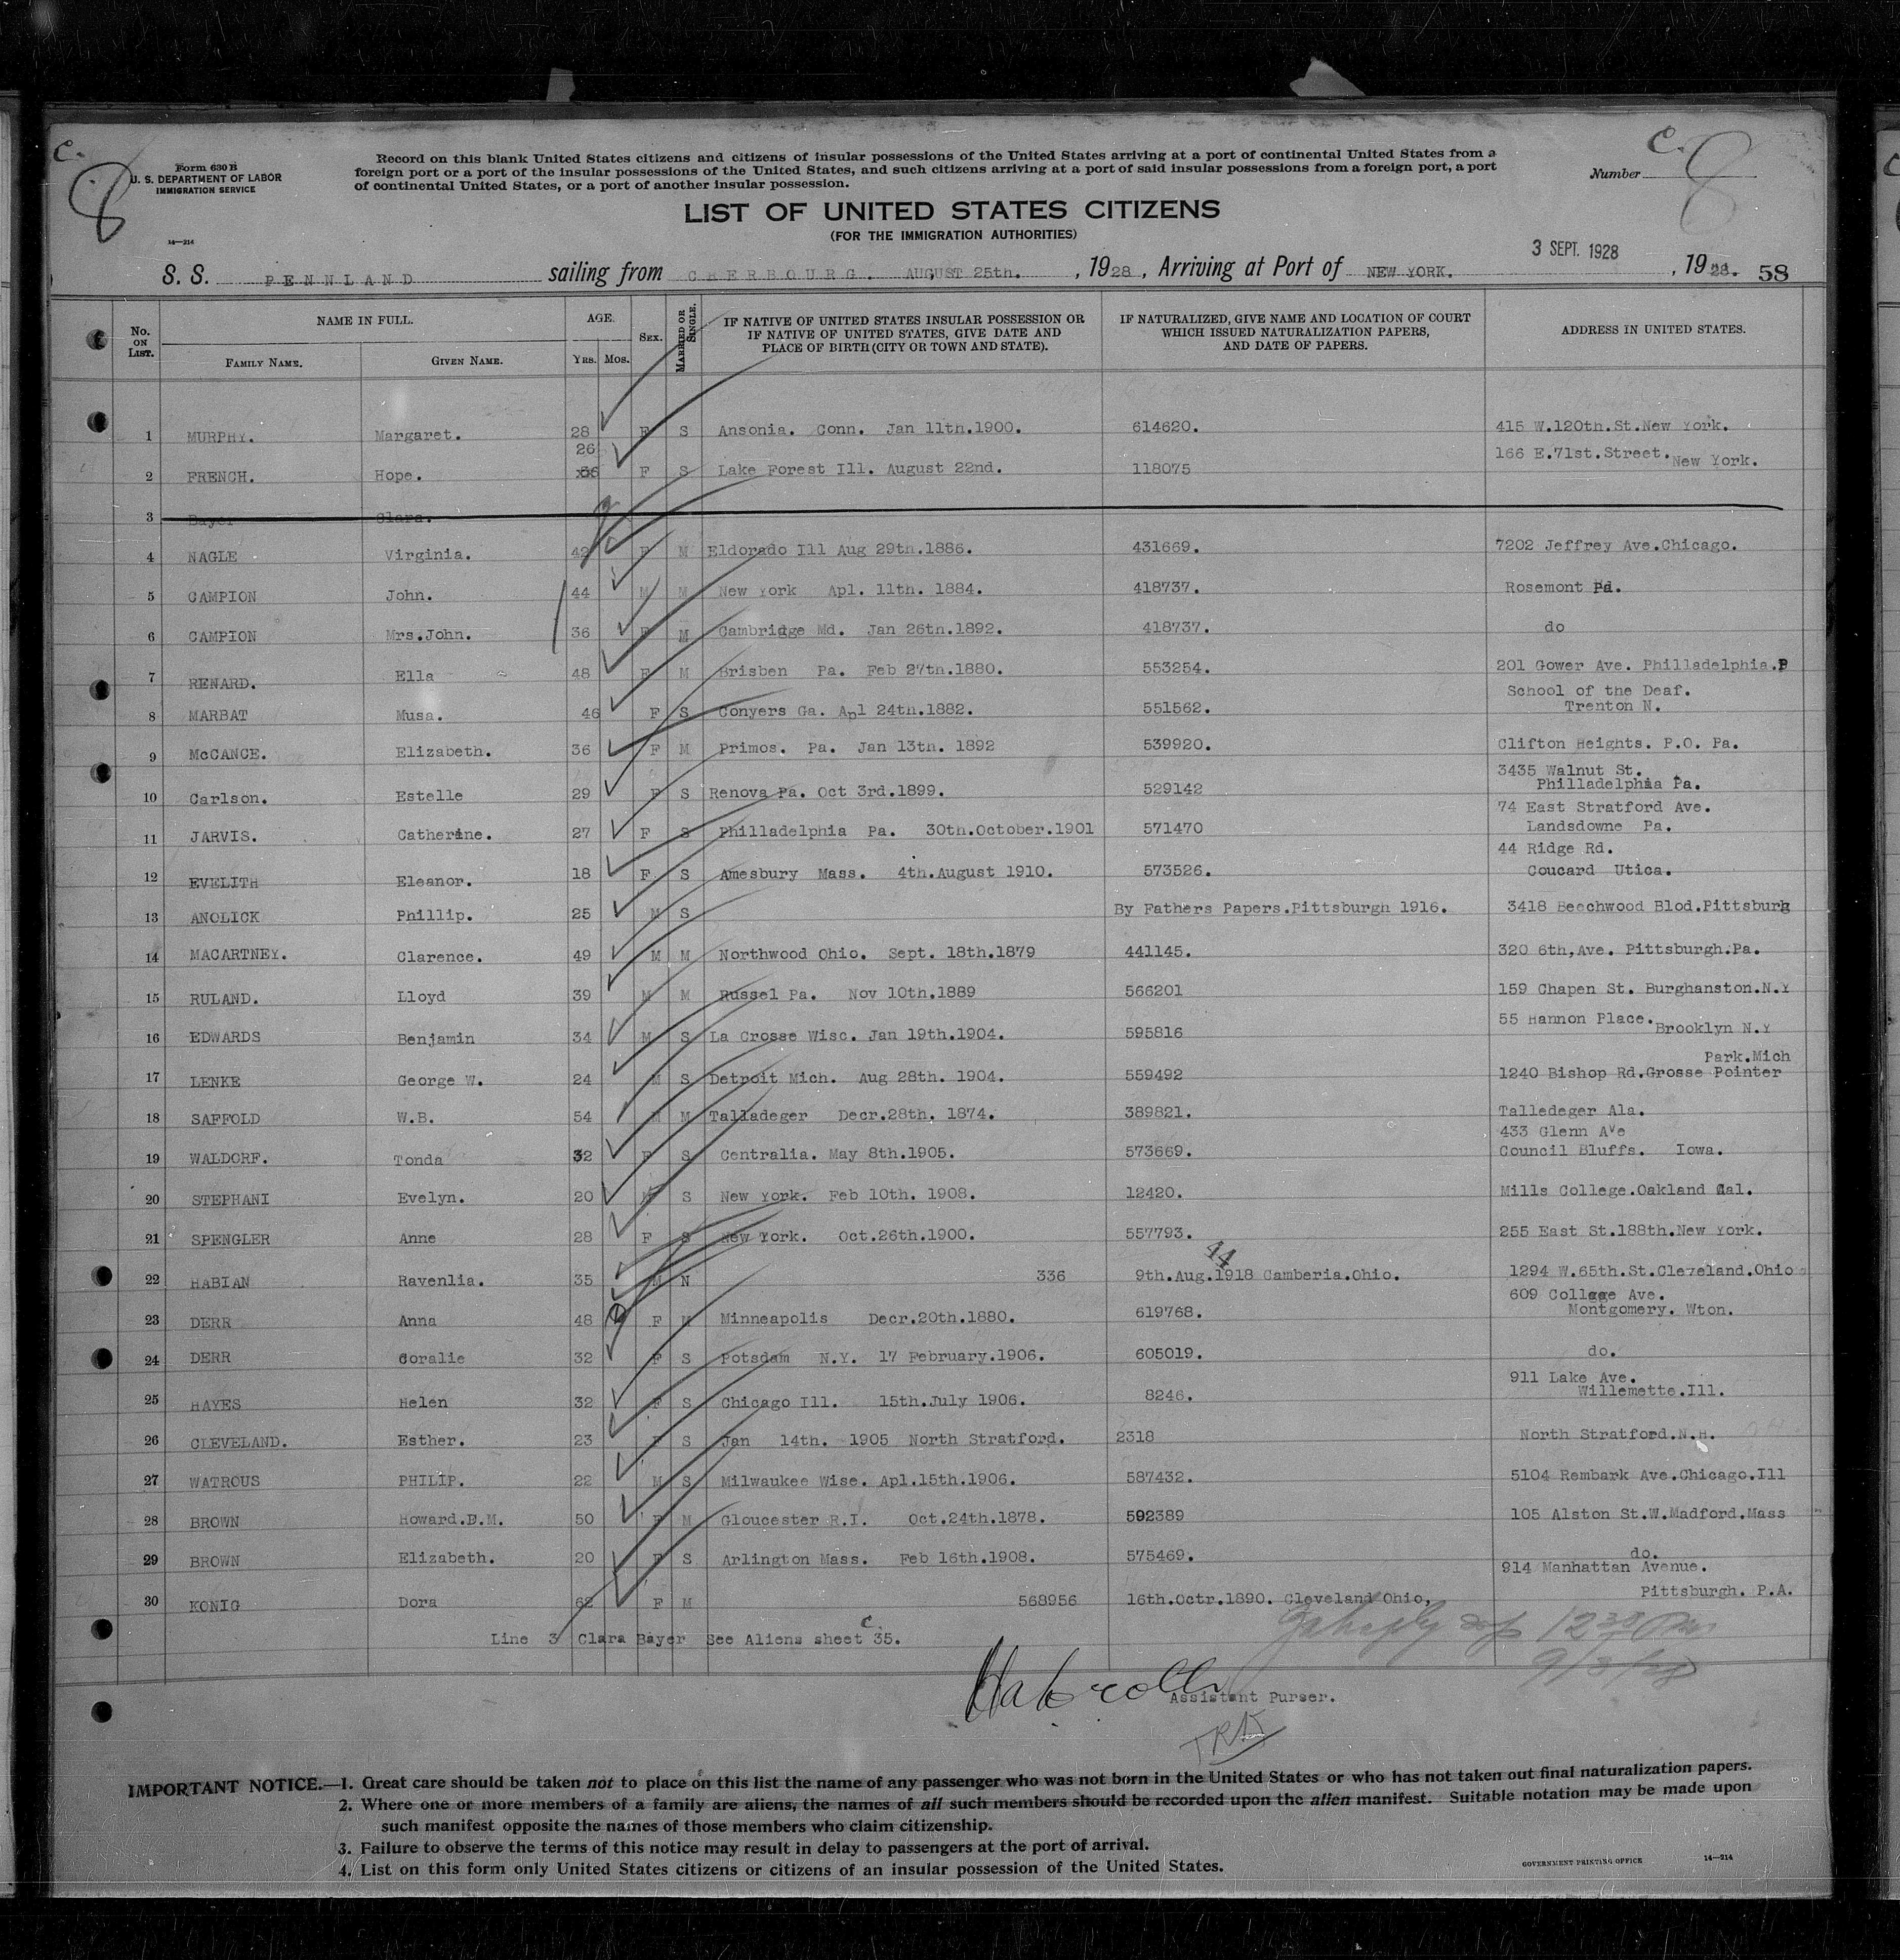 C.
8
Form 630 B
U. S. DEPARTMENT OF LABOR
IMMIGRATION SERVICE
14—214
Record on this blank United States citizens and citizens of insular possessions of the United States arriving at a port of continental United States from a
foreign port or a port of the insular possessions of the United States, and such citizens arriving at a port of said insular possessions from a foreign port, a port
of continental United States, or a port of another insular possession.
C.
Number 8
LIST OF UNITED STATES CITIZENS
(FOR THE IMMIGRATION AUTHORITIES)
S. S. PENNLAND sailing from CHERBOURG. AUGUST 25th. , 1928 , Arriving at Port of NEW YORK. 3 SEPT. 1928 , 1928. 58
No. ON LIST. NAME IN FULL. FAMILY NAME. GIVEN NAME. AGE. YRS. MOS. SEX. MARRIED OR SINGLE. IF NATIVE OF UNITED STATES INSULAR POSSESSION OR IF NATIVE OF UNITED STATES, GIVE DATE AND PLACE OF BIRTH (CITY OR TOWN AND STATE). IF NATURALIZED, GIVE NAME AND LOCATION OF COURT WHICH ISSUED NATURALIZATION PAPERS, AND DATE OF PAPERS. ADDRESS IN UNITED STATES.
1 MURPHY. Margaret. 28 F S Ansonia. Conn. Jan 11th.1900. 614620. 415 W.120th.St.New York.
2 FRENCH. Hope. 26 F S Lake Forest Ill. August 22nd. 118075 166 E.71st.Street. New York.
3 Bayer Clara.
4 NAGLE Virginia. 42 F M Eldorado Ill Aug 29th.1886. 431669. 7202 Jeffrey Ave.Chicago.
5 CAMPION John. 44 M M New York Apl. 11th. 1884. 418737. Rosemont Pa.
6 CAMPION Mrs.John. 36 F M Cambridge Md. Jan 26th.1892. 418737. do
7 RENARD. Ella 48 F M Brisben Pa. Feb 27th.1880. 553254. 201 Gower Ave. Philladelphia.P
8 MARBAT Musa. 46 F S Conyers Ga. Apl 24th.1882. 551562. School of the Deaf. Trenton N.
9 McCANCE. Elizabeth. 36 F M Primos. Pa. Jan 13th. 1892 539920. Clifton Heights. P.O. Pa.
10 Carlson. Estelle 29 F S Renova Pa. Oct 3rd.1899. 529142 3435 Walnut St. Philladelphia Pa.
11 JARVIS. Catherine. 27 F S Philladelphia Pa. 30th.October.1901 571470 74 East Stratford Ave. Landsdowne Pa.
12 EVELITH Eleanor. 18 F. S Amesbury Mass. 4th.August 1910. 573526. 44 Ridge Rd. Coucard Utica.
13 ANOLICK Phillip. 25 M S By Fathers Papers.Pittsburgh 1916. 3418 Beechwood Blod.Pittsburg
14 MACARTNEY. Clarence. 49 M M Northwood Ohio. Sept. 18th.1879 441145. 320 6th,Ave. Pittsburgh.Pa.
15 RULAND. Lloyd 39 M M Russel Pa. Nov 10th.1889 566201 159 Chapen St. Burghanston.N.Y
16 EDWARDS Benjamin 34 M S La Crosse Wisc. Jan 19th.1904. 595816 55 Hannon Place. Brooklyn N.Y
17 LENKE George W. 24 M S Detroit Mich. Aug 28th. 1904. 559492 1240 Bishop Rd.Grosse Pointer Park.Mich
18 SAFFOLD W.B. 54 M M Talladeger Decr.28th. 1874. 389821. Talledeger Ala.
19 WALDORF. Tonda 32 F S Centralia. May 8th.1905. 573669. 433 Glenn Ave Council Bluffs. Iowa.
20 STEPHANI Evelyn. 20 S New York. Feb 10th. 1908. 12420. Mills College.Oakland Cal.
21 SPENGLER Anne 28 F S New York. Oct.26th.1900. 557793. 255 East St.188th.New York.
22 HABIAN Ravenlia. 35 M N 336 9th.Aug.1918 Camberia.Ohio. 44 1294 W.65th.St.Cleveland.Ohio
23 DERR Anna 48 F M Minneapolis Decr.20th.1880. 619768. 609 College Ave. Montgomery. Wton.
24 DERR Coralie 32 F S Potsdam N.Y. 17 February.1906. 605019. do.
25 HAYES Helen 32 F S Chicago Ill. 15th.July 1906. 8246. 911 Lake Ave. Willemette.Ill.
26 CLEVELAND. Esther. 23 F S Jan 14th. 1905 North Stratford. 2318 North Stratford.N.H.
27 WATROUS PHILIP. 22 M S Milwaukee Wise. Apl.15th.1906. 587432. 5104 Rembark Ave.Chicago.Ill
28 BROWN Howard.B.M. 50 F M Gloucester R.I. Oct.24th.1878. 592389 105 Alston St.W.Madford.Mass
29 BROWN Elizabeth. 20 F S Arlington Mass. Feb 16th.1908. 575469. do.
30 KONIG Dora 62 F M 568956 16th.Octr.1890. Cleveland Ohio, 914 Manhattan Avenue. Pittsburgh. P.A.
Line 3 Clara Bayer See Aliens sheet C. 35.
9/3/28
Assistant Purser.
IMPORTANT NOTICE.—1. Great care should be taken not to place on this list the name of any passenger who was not born in the United States or who has not taken out final naturalization papers.
2. Where one or more members of a family are aliens, the names of all such members should be recorded upon the alien manifest. Suitable notation may be made upon
such manifest opposite the names of those members who claim citizenship.
3. Failure to observe the terms of this notice may result in delay to passengers at the port of arrival.
4. List on this form only United States citizens or citizens of an insular possession of the United States.
GOVERNMENT PRINTING OFFICE 14—214